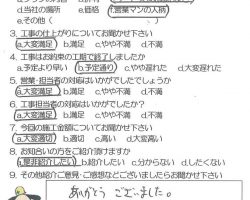 d.当社の場所　e.価格　f.営業マンの人柄
e.その他（　　　）
3. 工事の仕上がりについてお聞かせ下さい
a.大変満足　b.満足　c.やや不満　d.不満
4. 工事はお約束の工期で終了しましたか
a.予定より早い　b.予定通り　c.やや遅れた　d.大変遅れた
5. 営業･担当者の対応はいかがでしたでしょうか
a.大変満足　b.満足　c.やや不満　d.不満
6. 工事担当者の対応はいかがでしたか？
a.大変満足　b.満足　c.やや不満　d.不満
7. 今回の施工金額についてお聞かせ下さい
a.大変適切　b.適切　c.高い　d.大変高い
8. お知合いの方をご紹介頂けますか
a.是非紹介したい　b.紹介したい　c.分からない　d.したくない
9. その他紹介ご意見･ご感想などございましたらお聞かせ下さい
ありがとう ございました。